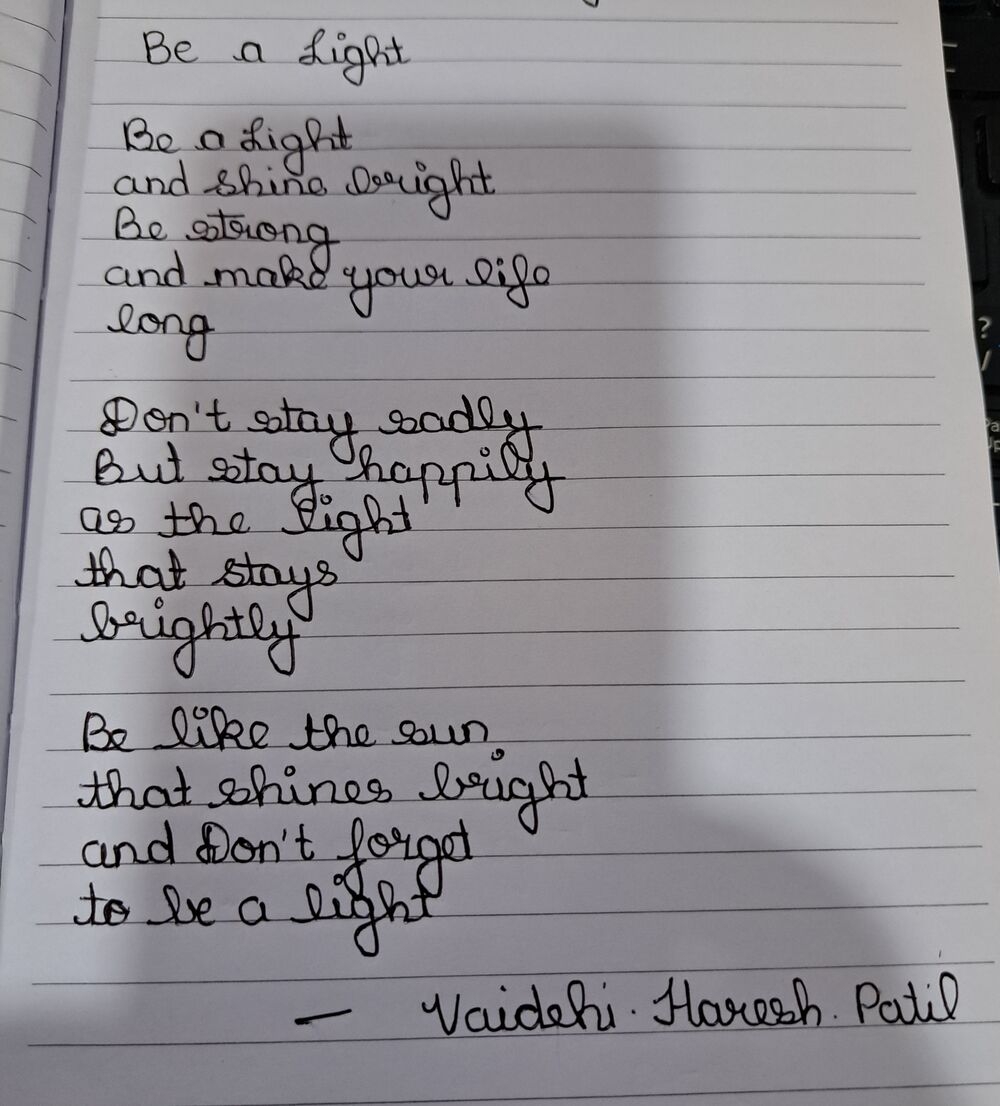 Be a Light
Be a Light
and shine bright
Be strong
and make your life
long
Don't stay sadly
But stay happily
as the light
that stays
brightly
Be like the sun
that shines bright
and Don't forget
to be a light
— Vaidehi. Haresh. Patil
?
/